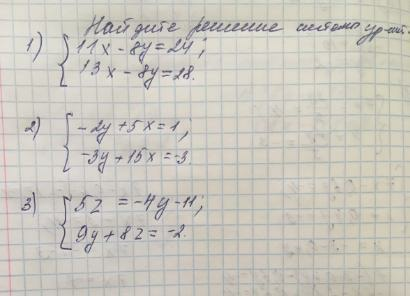 Найдите решение системы ур-ний.
1) { 11x - 8y = 24;
13x - 8y = 28.
2) { -2y + 5x = 1;
-3y + 15x = -3
3) { 5z = -4y - 11;
9y + 8z = -2.